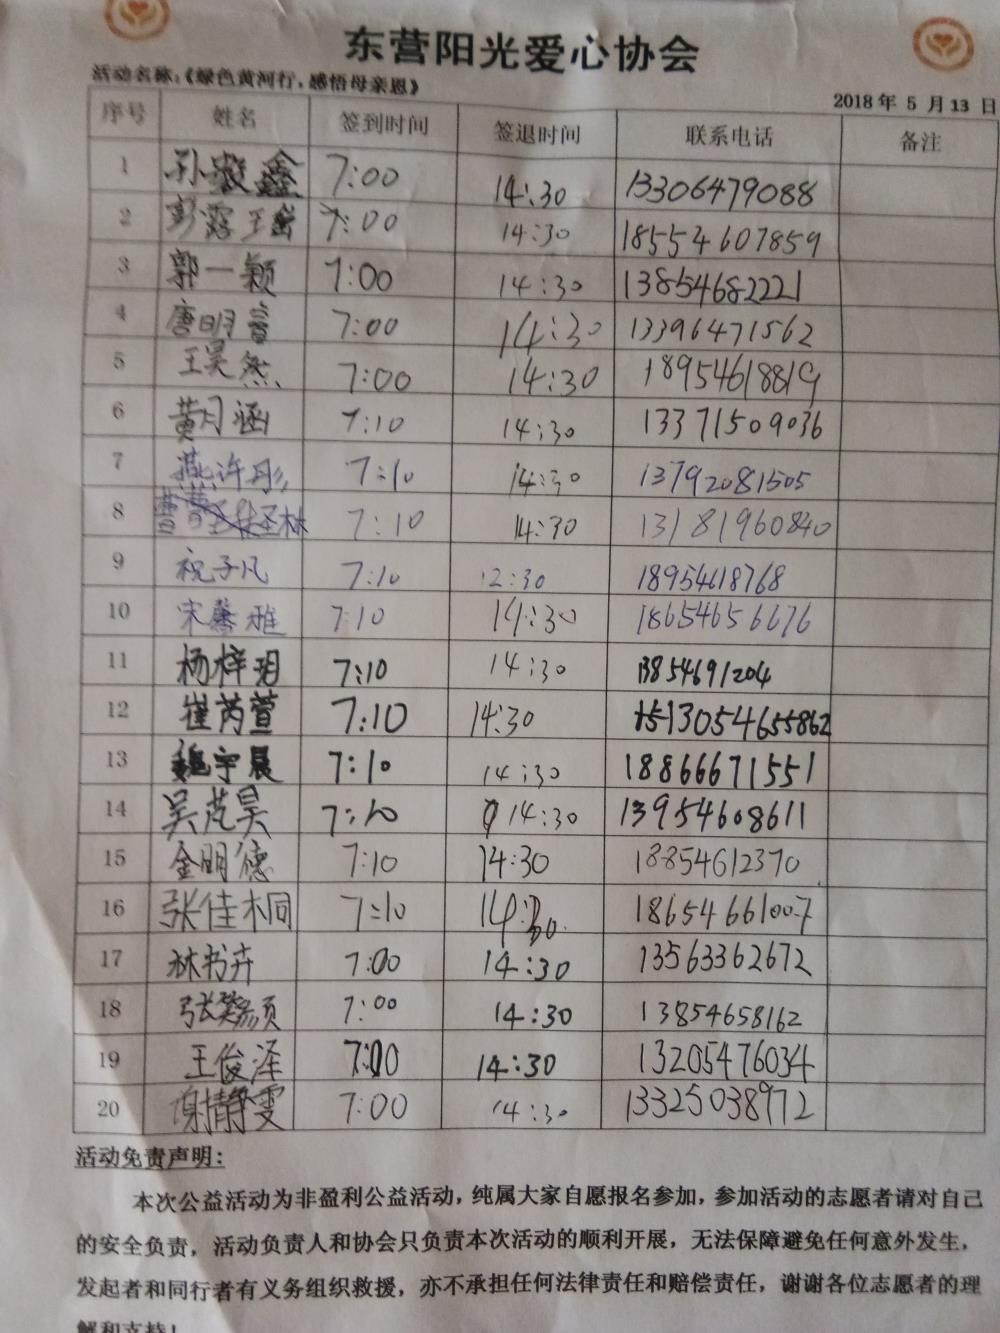 东营阳光爱心协会
活动名称：《绿色黄河行，感悟母亲恩》
2018 年 5 月 13 日
序号 姓名 签到时间 签退时间 联系电话 备注
1 孙 鑫 7:00 14:30 13306479088
2 彭露 王 7:00 14:30 18554607859
3 郭一颖 7:00 14:30 13854682221
4 唐明 7:00 14:30 13396471562
5 王昊然 7:00 14:30 18954618819
6 黄月涵 7:10 14:30 13371509036
7 燕许彤 7:10 14:30 13792081505
8 曹圣林 7:10 14:30 13181960840
9 祝子凡 7:10 12:30 18954618768
10 宋馨雅 7:10 14:30 18654656676
11 杨梓玥 7:10 14:30 13854691204
12 崔芮萱 7:10 14:30 13054655862
13 魏宇晨 7:10 14:30 18866671551
14 吴芃昊 7:10 14:30 13954608611
15 金明德 7:10 14:30 18854612370
16 张佳桐 7:10 14:30 18654661007
17 林书卉 7:00 14:30 13563362672
18 张 7:00 14:30 13854658162
19 王俊泽 7:00 14:30 13205476034
20 谢静雯 7:00 14:30 13325038972
活动免责声明：
本次公益活动为非盈利公益活动，纯属大家自愿报名参加，参加活动的志愿者请对自己
的安全负责，活动负责人和协会只负责本次活动的顺利开展，无法保障避免任何意外发生，
发起者和同行者有义务组织救援，亦不承担任何法律责任和赔偿责任，谢谢各位志愿者的理
解和支持！